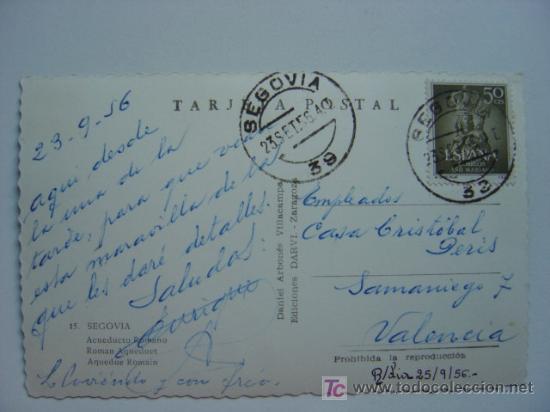 TARJETA POSTAL
23-9-56
Aquí desde
la una de la
tarde, para que vean
esta maravilla de la
que les daré detalles
Saludos:
Enrique
15. SEGOVIA
Acueducto Romano
Roman Aqueduct
Aqueduc Romain
Lloviendo y con frío.
Daniel Arbonés Villacampa
Ediciones DARVI.-Zaragoza
SEGOVIA
23.SET.56.4
39
SEGOVIA
50
CTS
ESPAÑA
AÑO MARIANO
Empleados
Casa Cristóbal
Peris
Samaniego 7
Valencia
Prohibida la reproducción
25/9/56.-
TC
todocoleccion.net